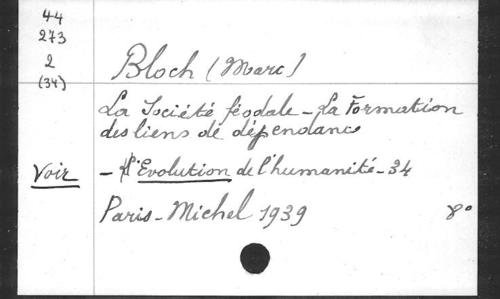 44
273
2
(34)
Bloch (Marc)
La Société féodale - La Formation
des liens de dépendance
Voir
- L'Evolution de l'humanité - 34
Paris - Michel 1939
8°